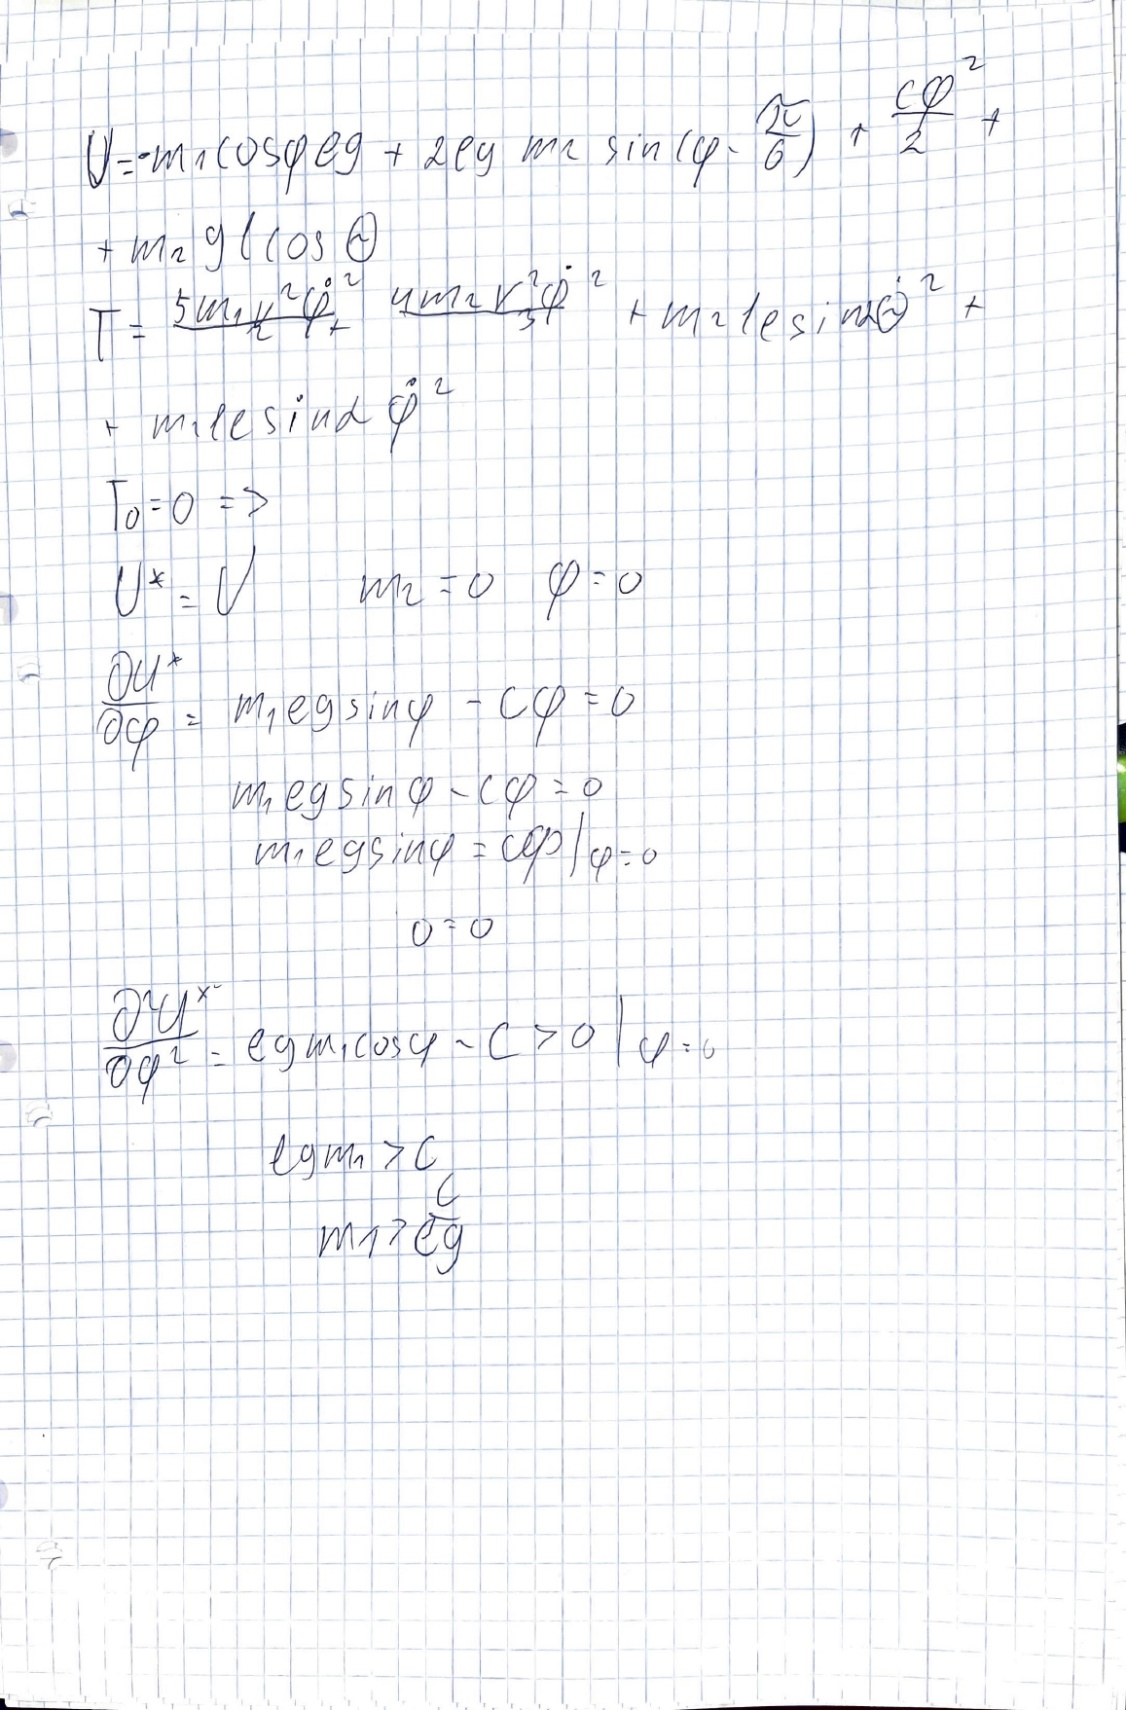 U = -m₁cosφeg + 2eg m₂ sin(φ - π/6) + cφ²/2 +
+ m₂gl cosΘ
T = 5m₁r²φ̇²/2 + 4m₂r²φ̇²/3 + m₂lesinαΘ̇² +
+ m₂lesinα φ̇²
T₀=0 =>
U* = U m₂ = 0 φ = 0
∂U*/∂φ = m₁egsinφ - cφ = 0
m₁egsinφ - cφ = 0
m₁egsinφ = cφ |φ=0
0 = 0
∂²U*/∂φ² = egm₁cosφ - c > 0 |φ=0
egm₁ > c
m₁ > c/eg